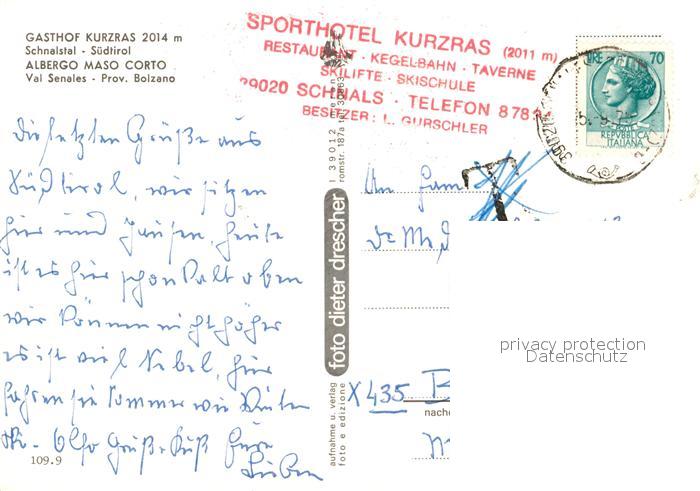 GASTHOF KURZRAS 2014 m
Schnalstal - Südtirol
ALBERGO MASO CORTO
Val Senales - Prov. Bolzano
SPORTHOTEL KURZRAS (2011 m)
RESTAURANT · KEGELBAHN · TAVERNE
SKILIFTE · SKISCHULE
39020 SCHNALS · TELEFON 8 78
BESITZER: L. GURSCHLER
LIRE 70
REPVBBLICA
ITALIANA
die letzten Grüße aus
Südtirol, wir sitzen
hier und Jausen, heute
ist es hier schon kalt oben
wir können nicht höher
es ist viel Nebel, hier
fahren sie Sommer wie Winter
Ski. Also Gruß + Kuß Eure
Lieben
109.9
foto dieter drescher
I 39012
romstr. 187a
aufnahme u. verlag
foto e edizione
An Fam
X435
nach
privacy protection
Datenschutz